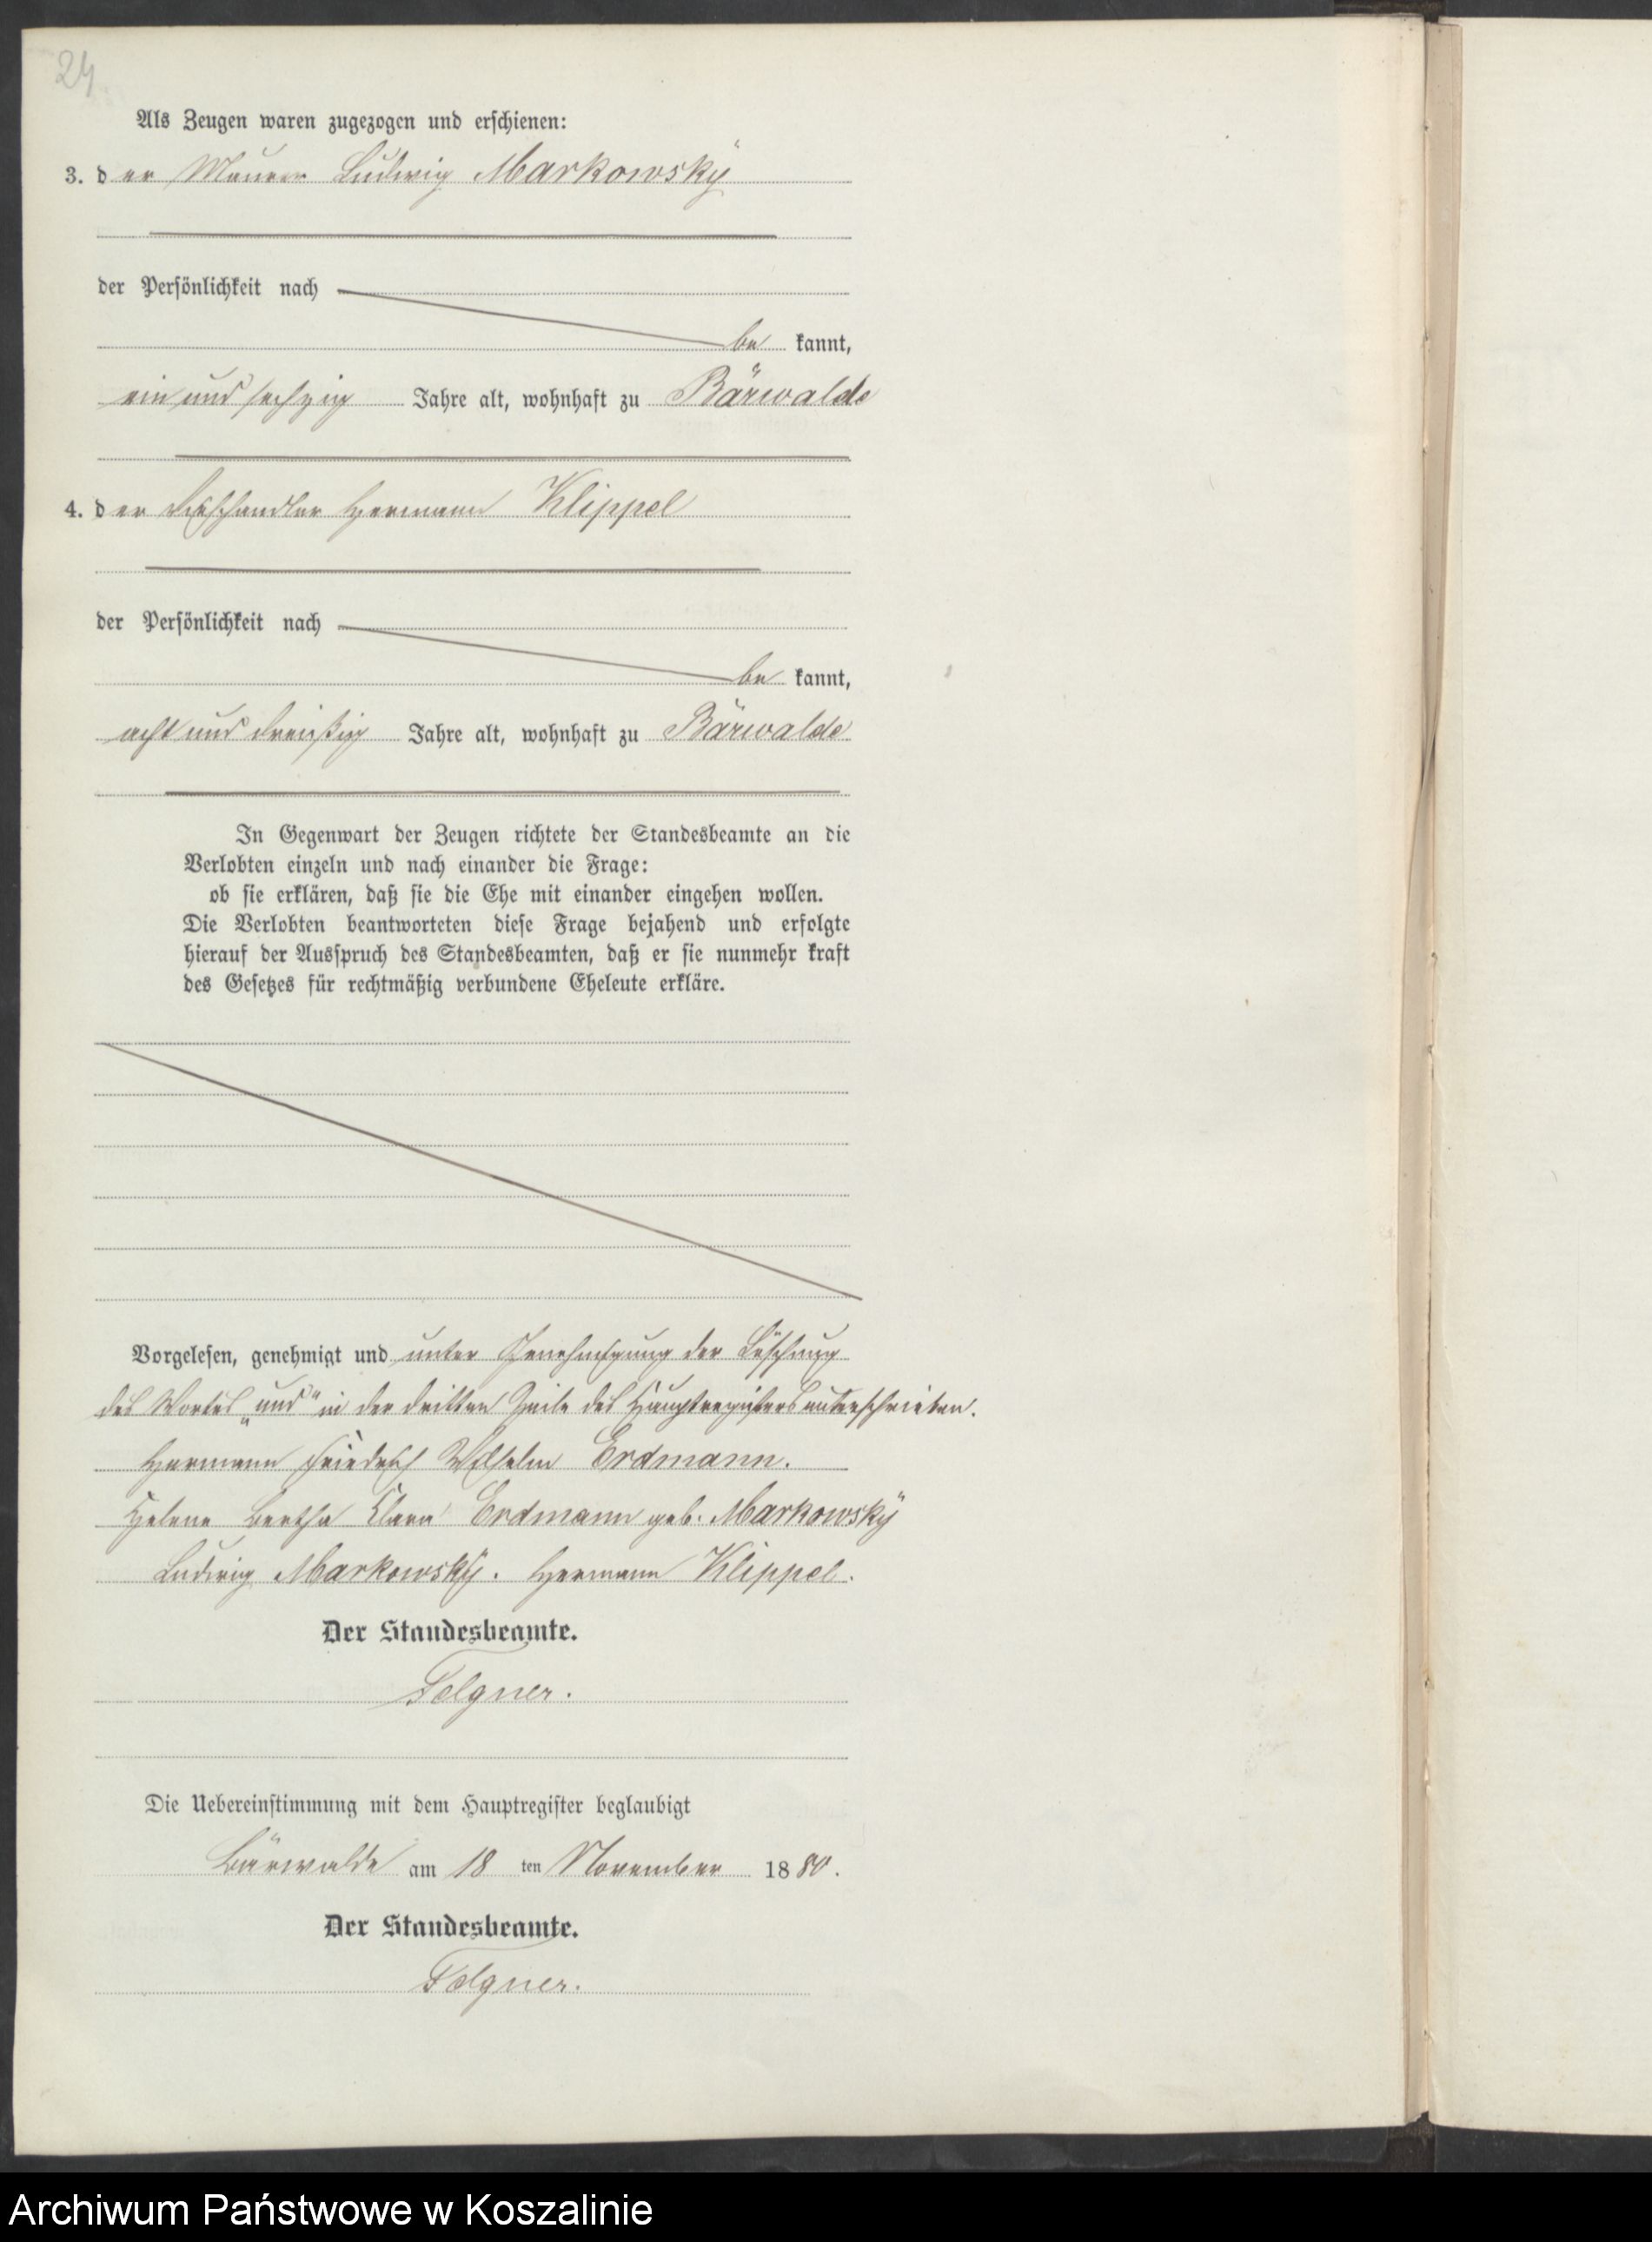 24
Als Zeugen waren zugezogen und erschienen:
3. der Maurer Ludwig Markowský
der Persönlichkeit nach
be kannt,
ein und sechzig Jahre alt, wohnhaft zu Bärwalde
4. der Viehhändler Hermann Klippel
der Persönlichkeit nach
be kannt,
acht und dreißig Jahre alt, wohnhaft zu Bärwalde
In Gegenwart der Zeugen richtete der Standesbeamte an die
Verlobten einzeln und nach einander die Frage:
ob sie erklären, daß sie die Ehe mit einander eingehen wollen.
Die Verlobten beantworteten diese Frage bejahend und erfolgte
hierauf der Ausspruch des Standesbeamten, daß er sie nunmehr kraft
des Gesetzes für rechtmäßig verbundene Eheleute erkläre.
Vorgelesen, genehmigt und unter Genehmigung der Löschung
des Wortes „und“ in der dritten Zeile des Hauptregisters unterschrieben.
Hermann Friedrich Wilhelm Erdmann.
Helene Bertha Clara Erdmann geb. Markowskÿ
Ludwig Markowskÿ. Hermann Klippel.
Der Standesbeamte.
Folgner.
Die Uebereinstimmung mit dem Hauptregister beglaubigt
Bärwalde am 18 ten November 1880.
Der Standesbeamte.
Folgner.
Archiwum Państwowe w Koszalinie